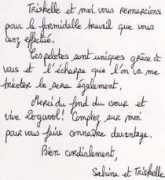 Triskelle et moi vous remercions
pour le formidable travail que vous
avez effectué.
Ces pelotes sont uniques grâce à
vous et l'écharpe que l'on va me
tricoter le sera également.
Merci du fond du coeur et
vive Kerganvel! Comptez sur moi
pour vous faire connaître davantage.
Bien cordialement,
Sabine et Triskelle